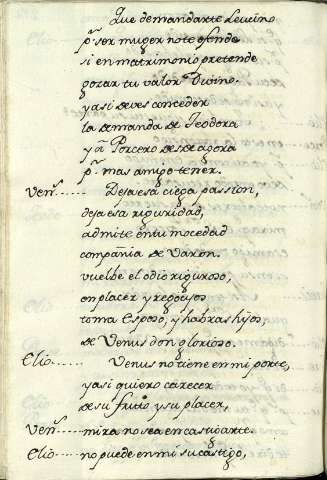 Que demandarte Leuino
pr ser muger no te ofende
si en matrimonio pretende
gozar tu valor Diuino.
y asi deues conceder
la demanda de Teodora
y a Porcero desde agora
pr mas amigo tener.
Vens...... Deja esa ciega passion,
deja esa riguridad,
admite en tu mocedad
compañia de Varon.
vuelbe el odio riguroso,
en placer y regocijos
toma Esposo, y habras hijos,
de Venus don glorioso.
Elio..... Venus no tiene en mi parte,
y asi quiero carecer
de su fruto y su placer,
Vens..... mira no sea en castigarte.
Elio..... no puede en mi su castigo,